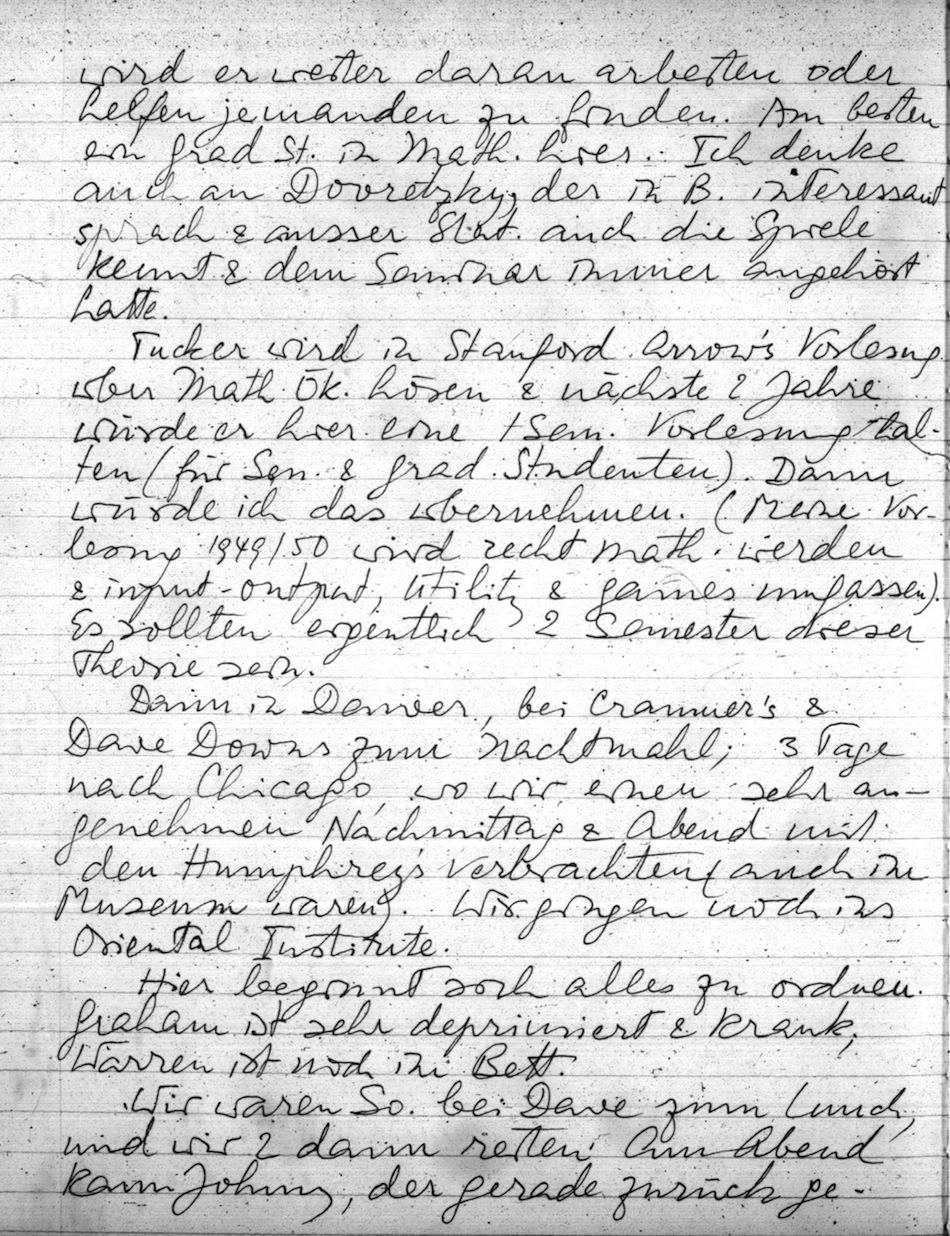 wird er weiter daran arbeiten oder
helfen jemanden zu finden. Am besten
ein grad St. in Math. hier. Ich denke
auch an Dvoretzky, der in B. interessant
sprach & ausser Stat. auch die Spiele
kennt & dem Seminar immer angehört
hatte.
Tucker wird in Stanford Arrow's Vorlesung
über Math Ök. hören & nächste 2 Jahre
würde er hier eine 1 Sem. Vorlesung hal-
ten (für Sen. & grad. Studenten). Dann
würde ich das übernehmen. (Meine Vor-
lesung 1949/50 wird recht math. werden
& input-output, Utility & games umfassen).
Es sollten eigentlich 2 Semester dieser
Theorie sein.
Dann in Denver, bei Crammer's &
Dave Downs zum Nachtmahl; 3 Tage
nach Chicago, wo wir einen sehr an-
genehmen Nachmittag & Abend mit
den Humphrey's verbrachten (auch im
Museum waren). Wir gingen noch ins
Oriental Institute.
Hier beginnt sich alles zu ordnen.
Graham ist sehr deprimiert & krank,
Warren ist noch im Bett.
Wir waren So. bei Dave zum Lunch,
und wir 2 dann reiten. Am Abend
kam Johnny, der gerade zurück ge-